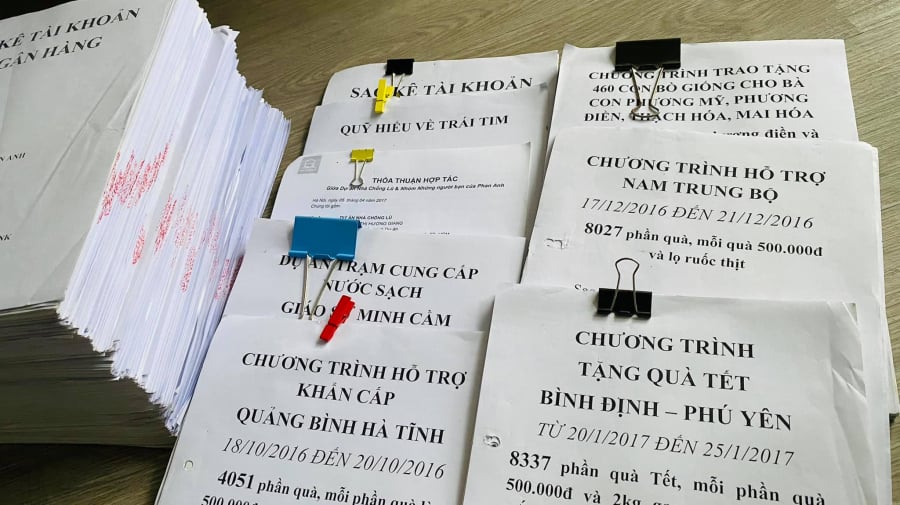 KÊ TÀI KHOẢN
NGÂN HÀNG
ANH
SAO KÊ TÀI KHOẢN
QUỸ HIỂU VỀ TRÁI TIM
THỎA THUẬN HỢP TÁC
Giữa Dự Án Nhà Chống Lũ & Nhóm Những người bạn của Phan Anh
Hà Nội, ngày 05 tháng 04 năm 2017
Chúng tôi gồm:
DỰ ÁN NHÀ CHỐNG LŨ
HƯƠNG GIANG
DỰ ÁN TRẠM CUNG CẤP
NƯỚC SẠCH
GIÁO XỨ MINH CẦM
CHƯƠNG TRÌNH HỖ TRỢ
KHẨN CẤP
QUẢNG BÌNH HÀ TĨNH
18/10/2016 ĐẾN 20/10/2016
4051 phần quà, mỗi phần quà
500.000đ
CHƯƠNG TRÌNH TRAO TẶNG
460 CON BÒ GIỐNG CHO BÀ
CON PHƯƠNG MỸ, PHƯƠNG
ĐIỀN, KHÁCH HÓA, MAI HÓA
điền và
CHƯƠNG TRÌNH HỖ TRỢ
NAM TRUNG BỘ
17/12/2016 ĐẾN 21/12/2016
8027 phần quà, mỗi quà 500.000đ
và lọ ruốc thịt
CHƯƠNG TRÌNH
TẶNG QUÀ TẾT
BÌNH ĐỊNH – PHÚ YÊN
TỪ 20/1/2017 ĐẾN 25/1/2017
8337 phần quà Tết, mỗi phần
500.000đ và 2kg